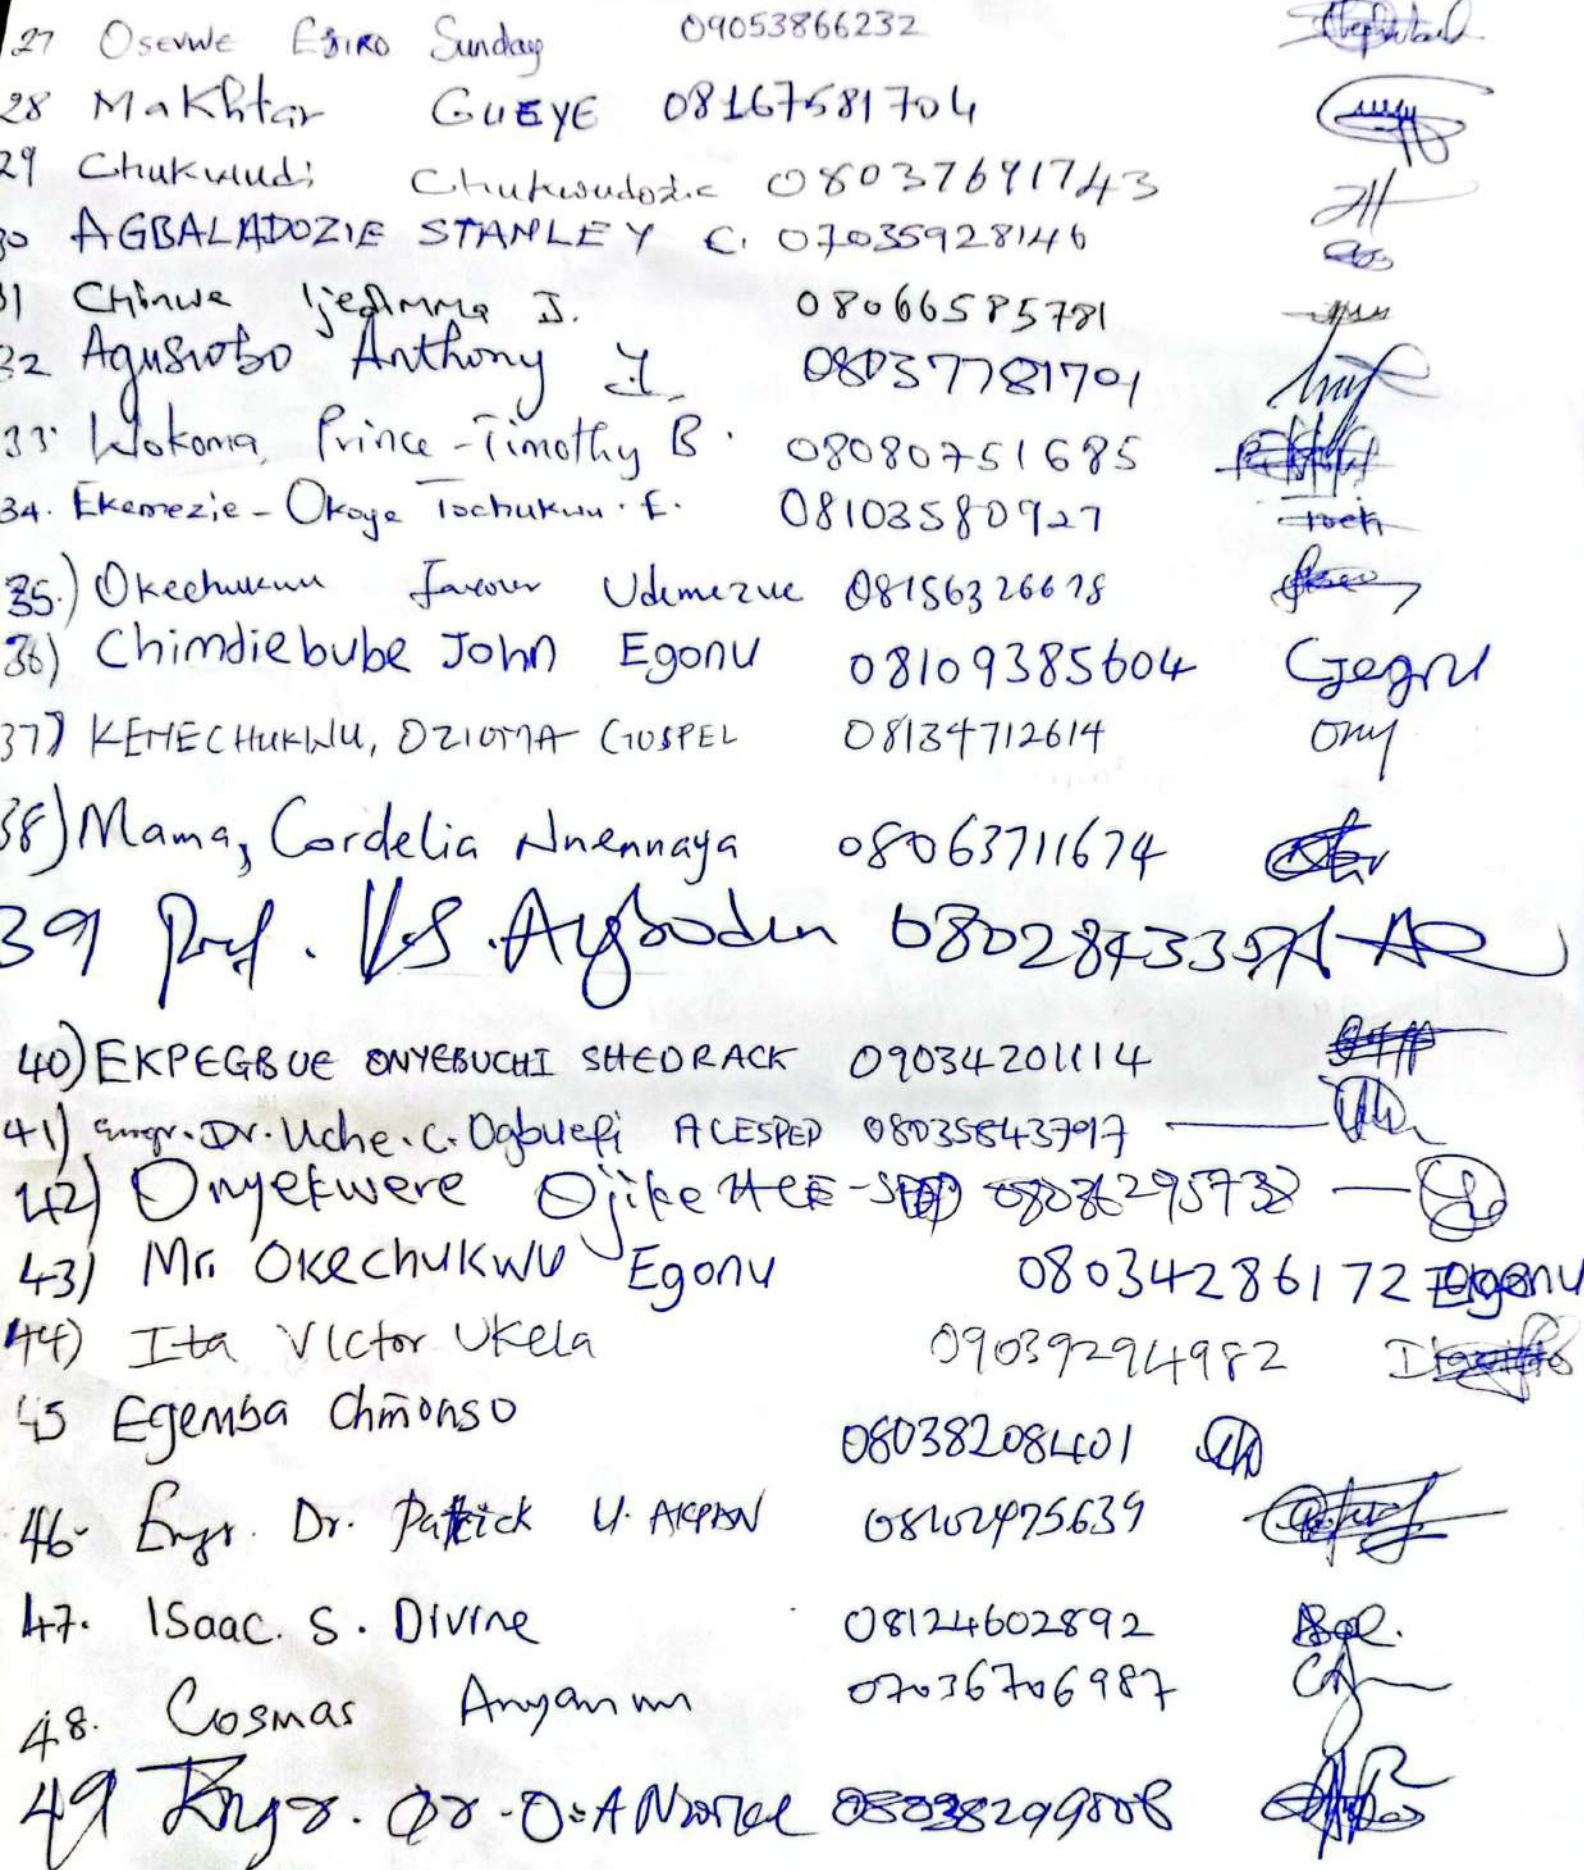 27 Osevwe Ejiro Sunday 09053866232
28 Makhtar GUEYE 08167581704
29 Chukwudi Chukwudozie 08037691743
30 AGBALADOZIE STANLEY C. 07035928146
31 Chinwe Ijeamma J. 08066585781
32 Agusiobo Anthony I. 08037781701
33. Wokoma, Prince-Timothy B. 08080751685
34. Ekemezie-Okoye Tochukwu. E. 08103580927
35.) Okechukwu Favour Udemezue 08156326678
36) Chimdiebube John Egonu 08109385604
37) KENECHUKWU, OZIOMA GOSPEL 08134712614
38) Mama, Cordelia Nnennaya 08063711674
39 Prof. V.S. 
40) EKPEGBUE ONYEBUCHI SHEDRACK 09034201114
41) Engr. Dr. Uche. C. Ogbuefi ACESPED 08035843797
42) Onyekwere Ojike
43) Mr. Okechukwu Egonu 08034286172 Egonu
44) Ita Victor Ukela 09039294982
45 Egemba Chinonso 08038208401
46- Engr. Dr. Patrick U. AKPAN 08102475639
47. Isaac. S. Divine 08124602892
48. Cosmas 07036706987
49 Engr. Dr. O. A